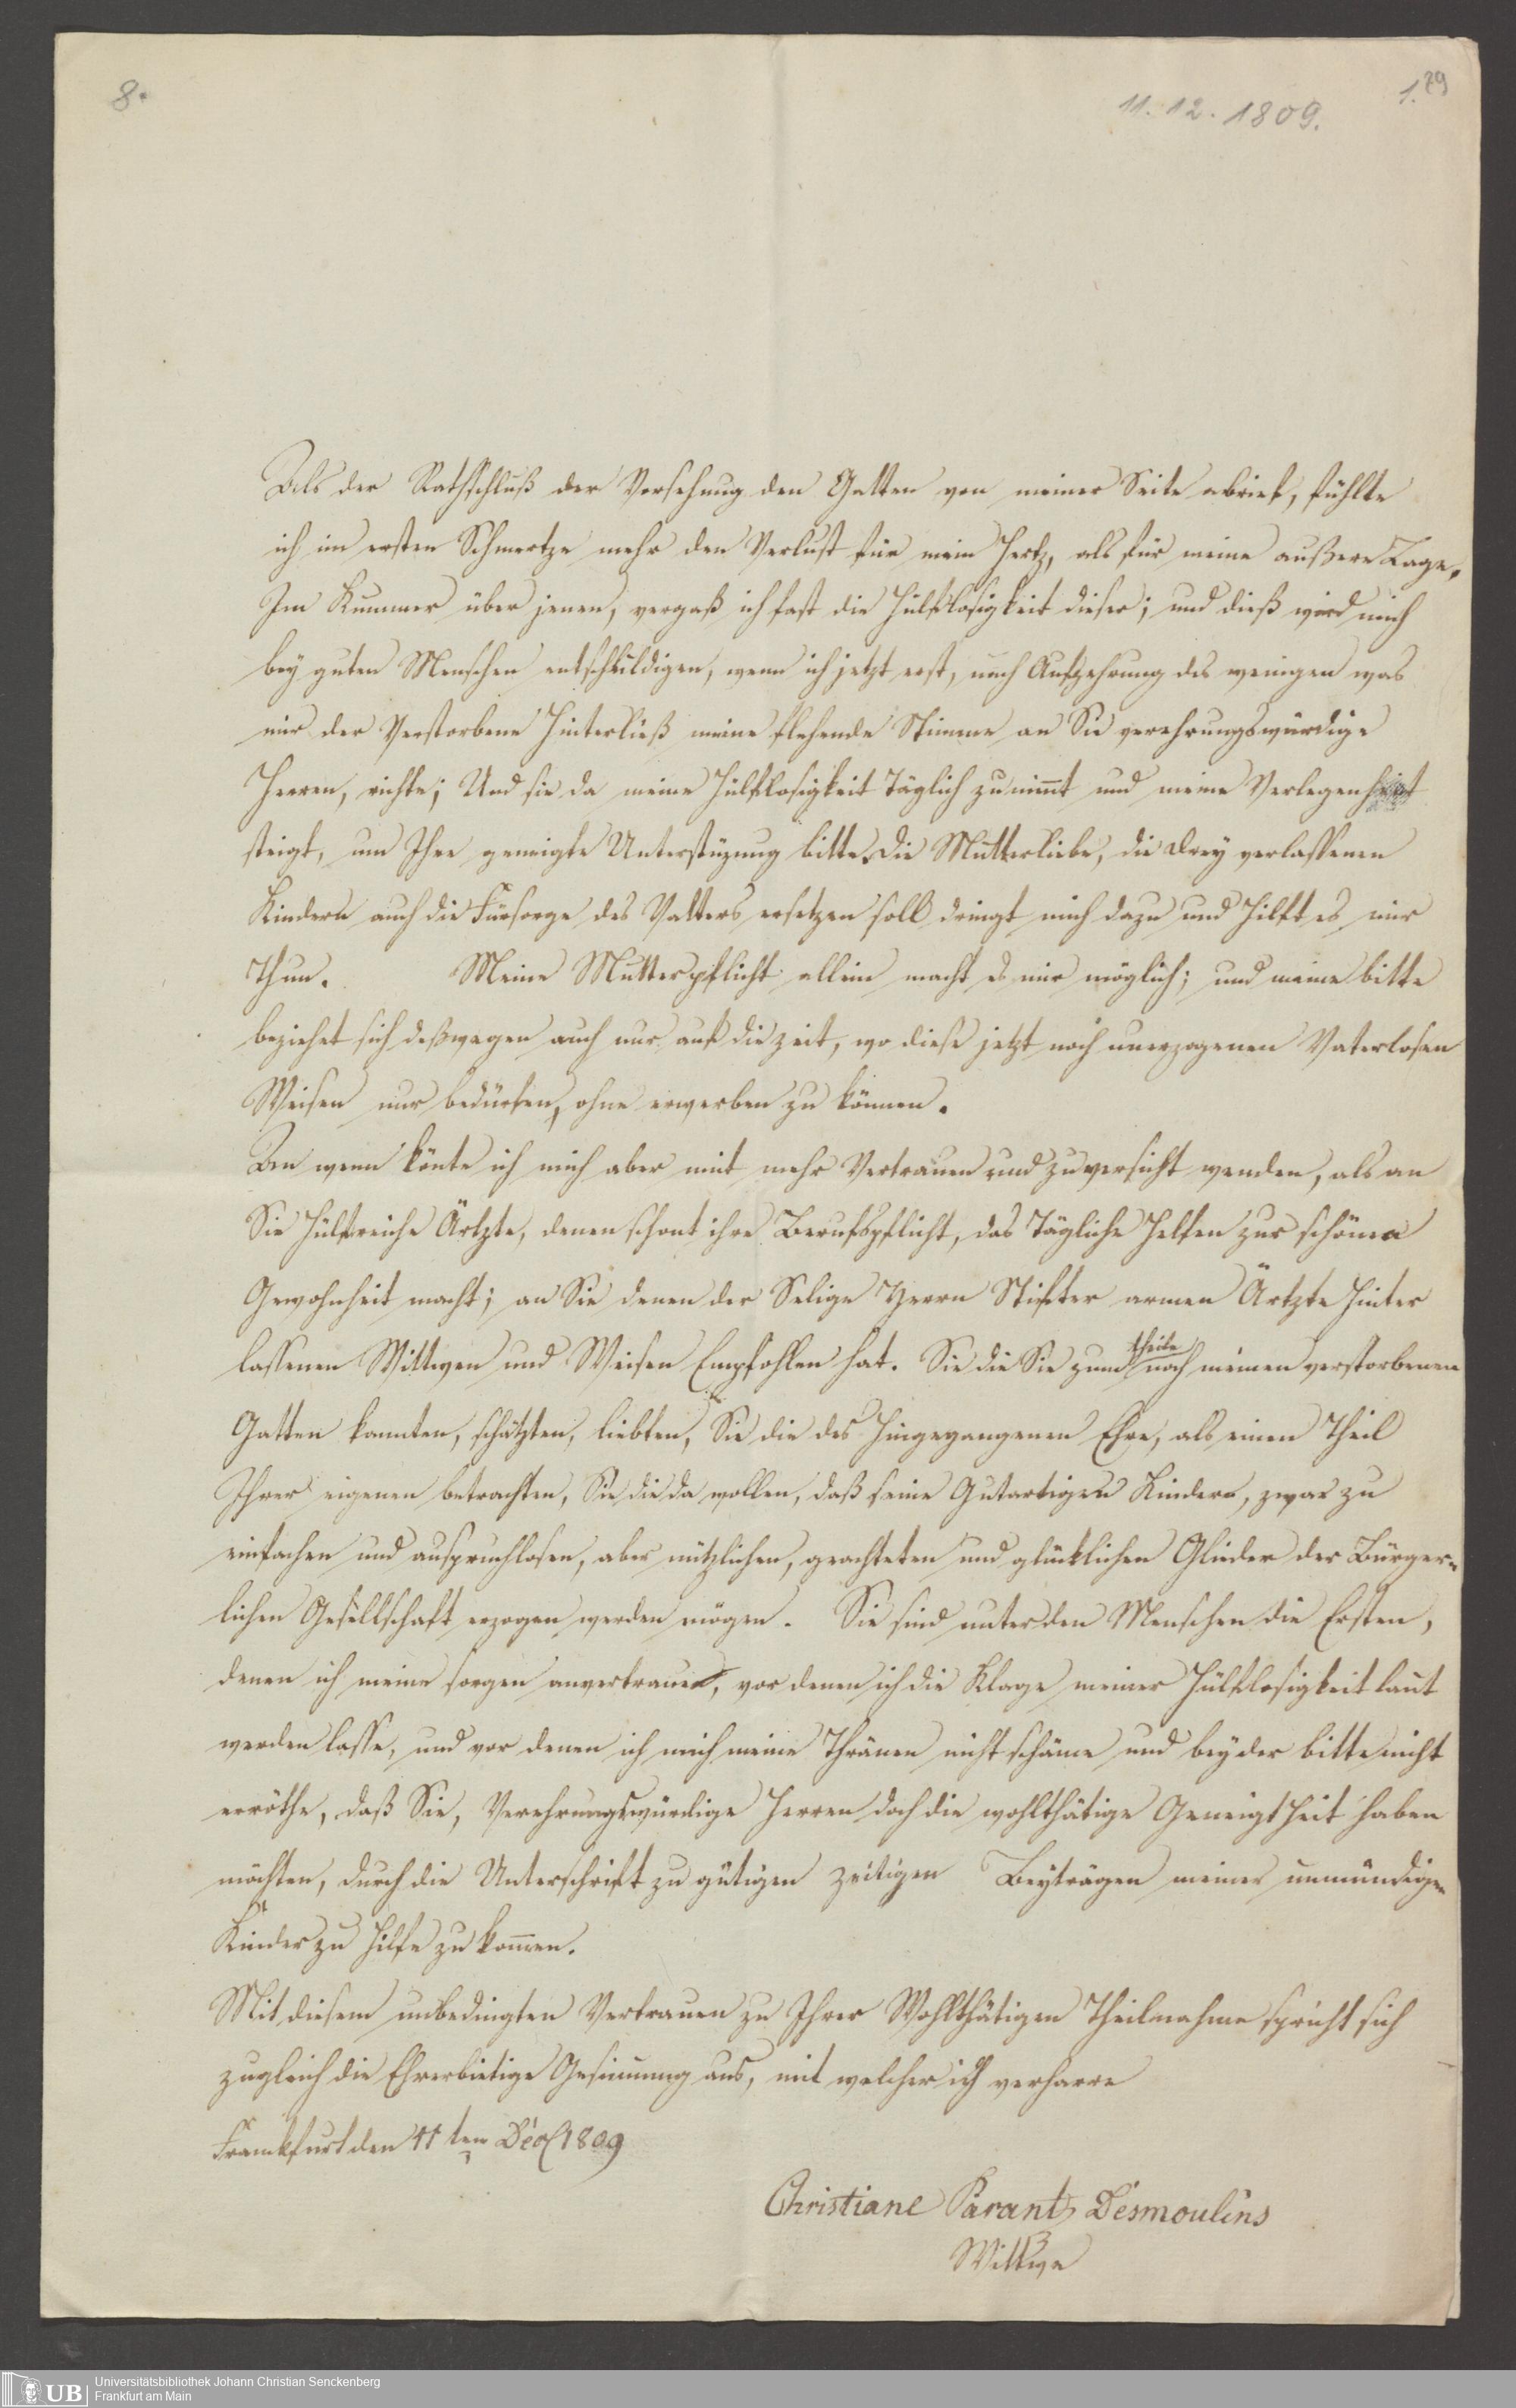 8.
11.12.1809.
1.29
Als der Rathschluß der Vorsehung den Gatten von meiner Seite abrief, fühlte
ich im ersten Schmertze mehr den Verlust für mein Hertz, als für meine außere Lage.
Im Kummer über jenen, vergaß ich fast die Hülflosigkeit dieser; und dieß wird mich
bey guten Menschen entschuldigen, wenn ich jetzt erst, nach Aufzehrung des wenigen was
mir der Verstorbene Hinterließ meine flehende Stimme an Sie verehrungswürdige
Herren, richte; Und sie da meine Hülflosigkeit Täglich zunimt und meine Verlegenheit
steigt, um Ihre geneigte Unterstüzung bitte. Die Mutterliebe, die drey verlassenen
Kindern auch die Fürsorge des Vatters ersetzen soll dringt mich dazu und Hilft es mir
Thun. Meine Mutterpflicht allein macht es mir möglich; und meine bitte
beziehet sich deßwegen auch nur auf die zeit, wo diese jetzt noch unerzogenen Vaterlosen
Weisen nur bedürfen, ohne erwerben zu können.
An wenn könte ich mich aber mit mehr Vertrauen und zuversicht wenden, als an
Sie Hülfreiche Ärtzte, denen schont ihre Berufspflicht, das Tägliche Helfen zur schönen
Gewohnheit macht; an Sie denen der Selige Herrn Stifter armen Ärtzte Hinter
lassenen Wittwen und Weisen Empfohlen hat. Sie die Sie zum theile noch meinen verstorbenen
Gatten kannten, schätzten, liebten, Sie die des Hingegangenen Ehre, als einen Theil
Ihrer eigenen betrachten, Sie die da wollen, daß seine Gutartigen Kinder, zwar zu
einfachen und anspruchlosen, aber nützlichen, geachteten und glücklichen Glieder der Bürger-
lichen Gesellschaft erzogen werden mögen. Sie sind unter den Menschen die Ersten,
denen ich meine sorgen anvertraue, vor denen ich die Klage meiner Hülflosigkeit laut
werden lasse, und vor denen ich mich meine Thränen nicht schäme und bey der bitte nicht
erröthe, daß Sie, Verehrungswürdige Herren doch die wohlthätige Geneigtheit haben
möchten, durch die Unterschrift zu gütigen zeitigen Beyträgen meiner unmündigen
Kinder zu Hilfe zu kommen.
Mit diesem unbedingten Vertrauen zu Ihrer Wohlthätigen Theilnahme spricht sich
zugleich die Ehrerbietige Gesinnung aus, mit welcher ich verharre
Frankfurt den 11ten Dec 1809
Christiane Parant, Désmoulins
Wittwe
UB
Universitätsbibliothek Johann Christian Senckenberg
Frankfurt am Main